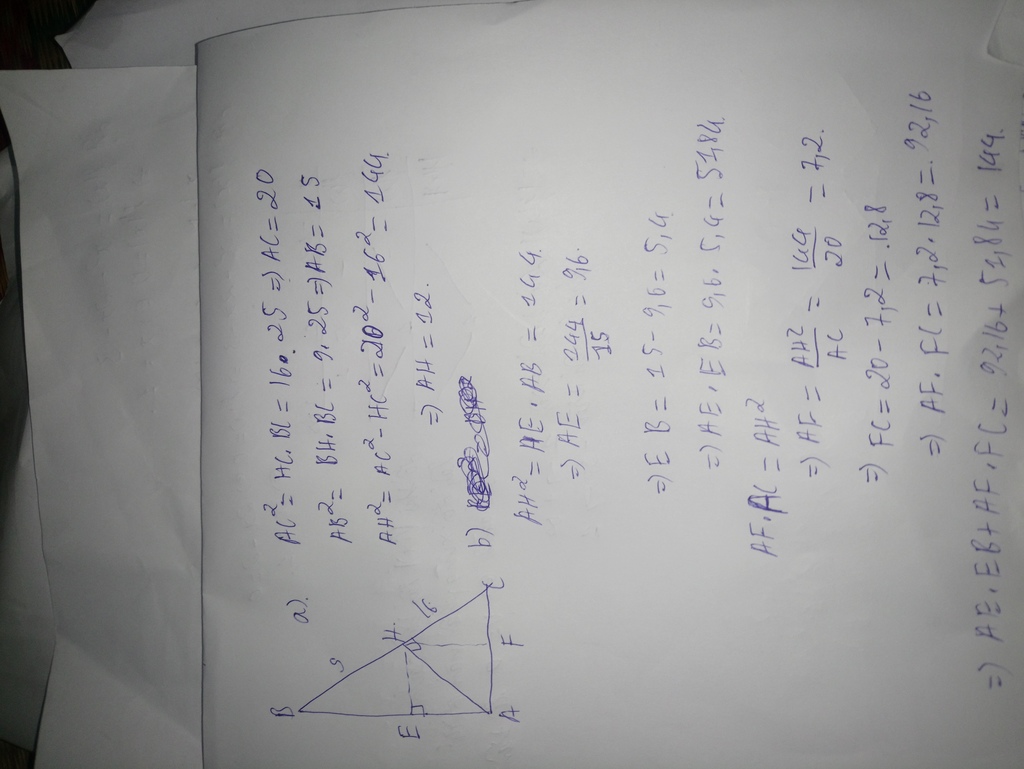 B
a).
AC² = HC. BC = 16. 25 => AC = 20
AB² = BH. BC = 9. 25 => AB = 15
H
E
16
AH² = AC² - HC² = 20² - 16² = 144.
=> AH = 12.
A F C
b)
AH² = AE . AB = 144.
=> AE = 144/15 = 9,6.
=> E B = 15 - 9,6 = 5,4
=> AE . EB = 9,6. 5,4 = 51,84.
AF. AC = AH²
=> AF = AH²/AC = 144/20 = 7,2.
=> FC = 20 - 7,2 = .12,8
=> AF. FC = 7,2. 12,8 =. 92,16
=> AE. EB + AF. FC = 92,16 + 51,84 = 144.